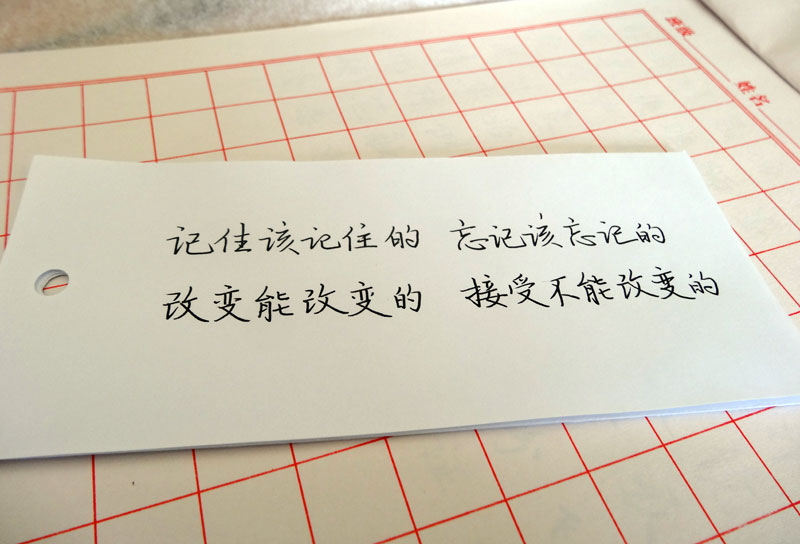 记住该记住的 忘记该忘记的
改变能改变的 接受不能改变的
班级
姓名